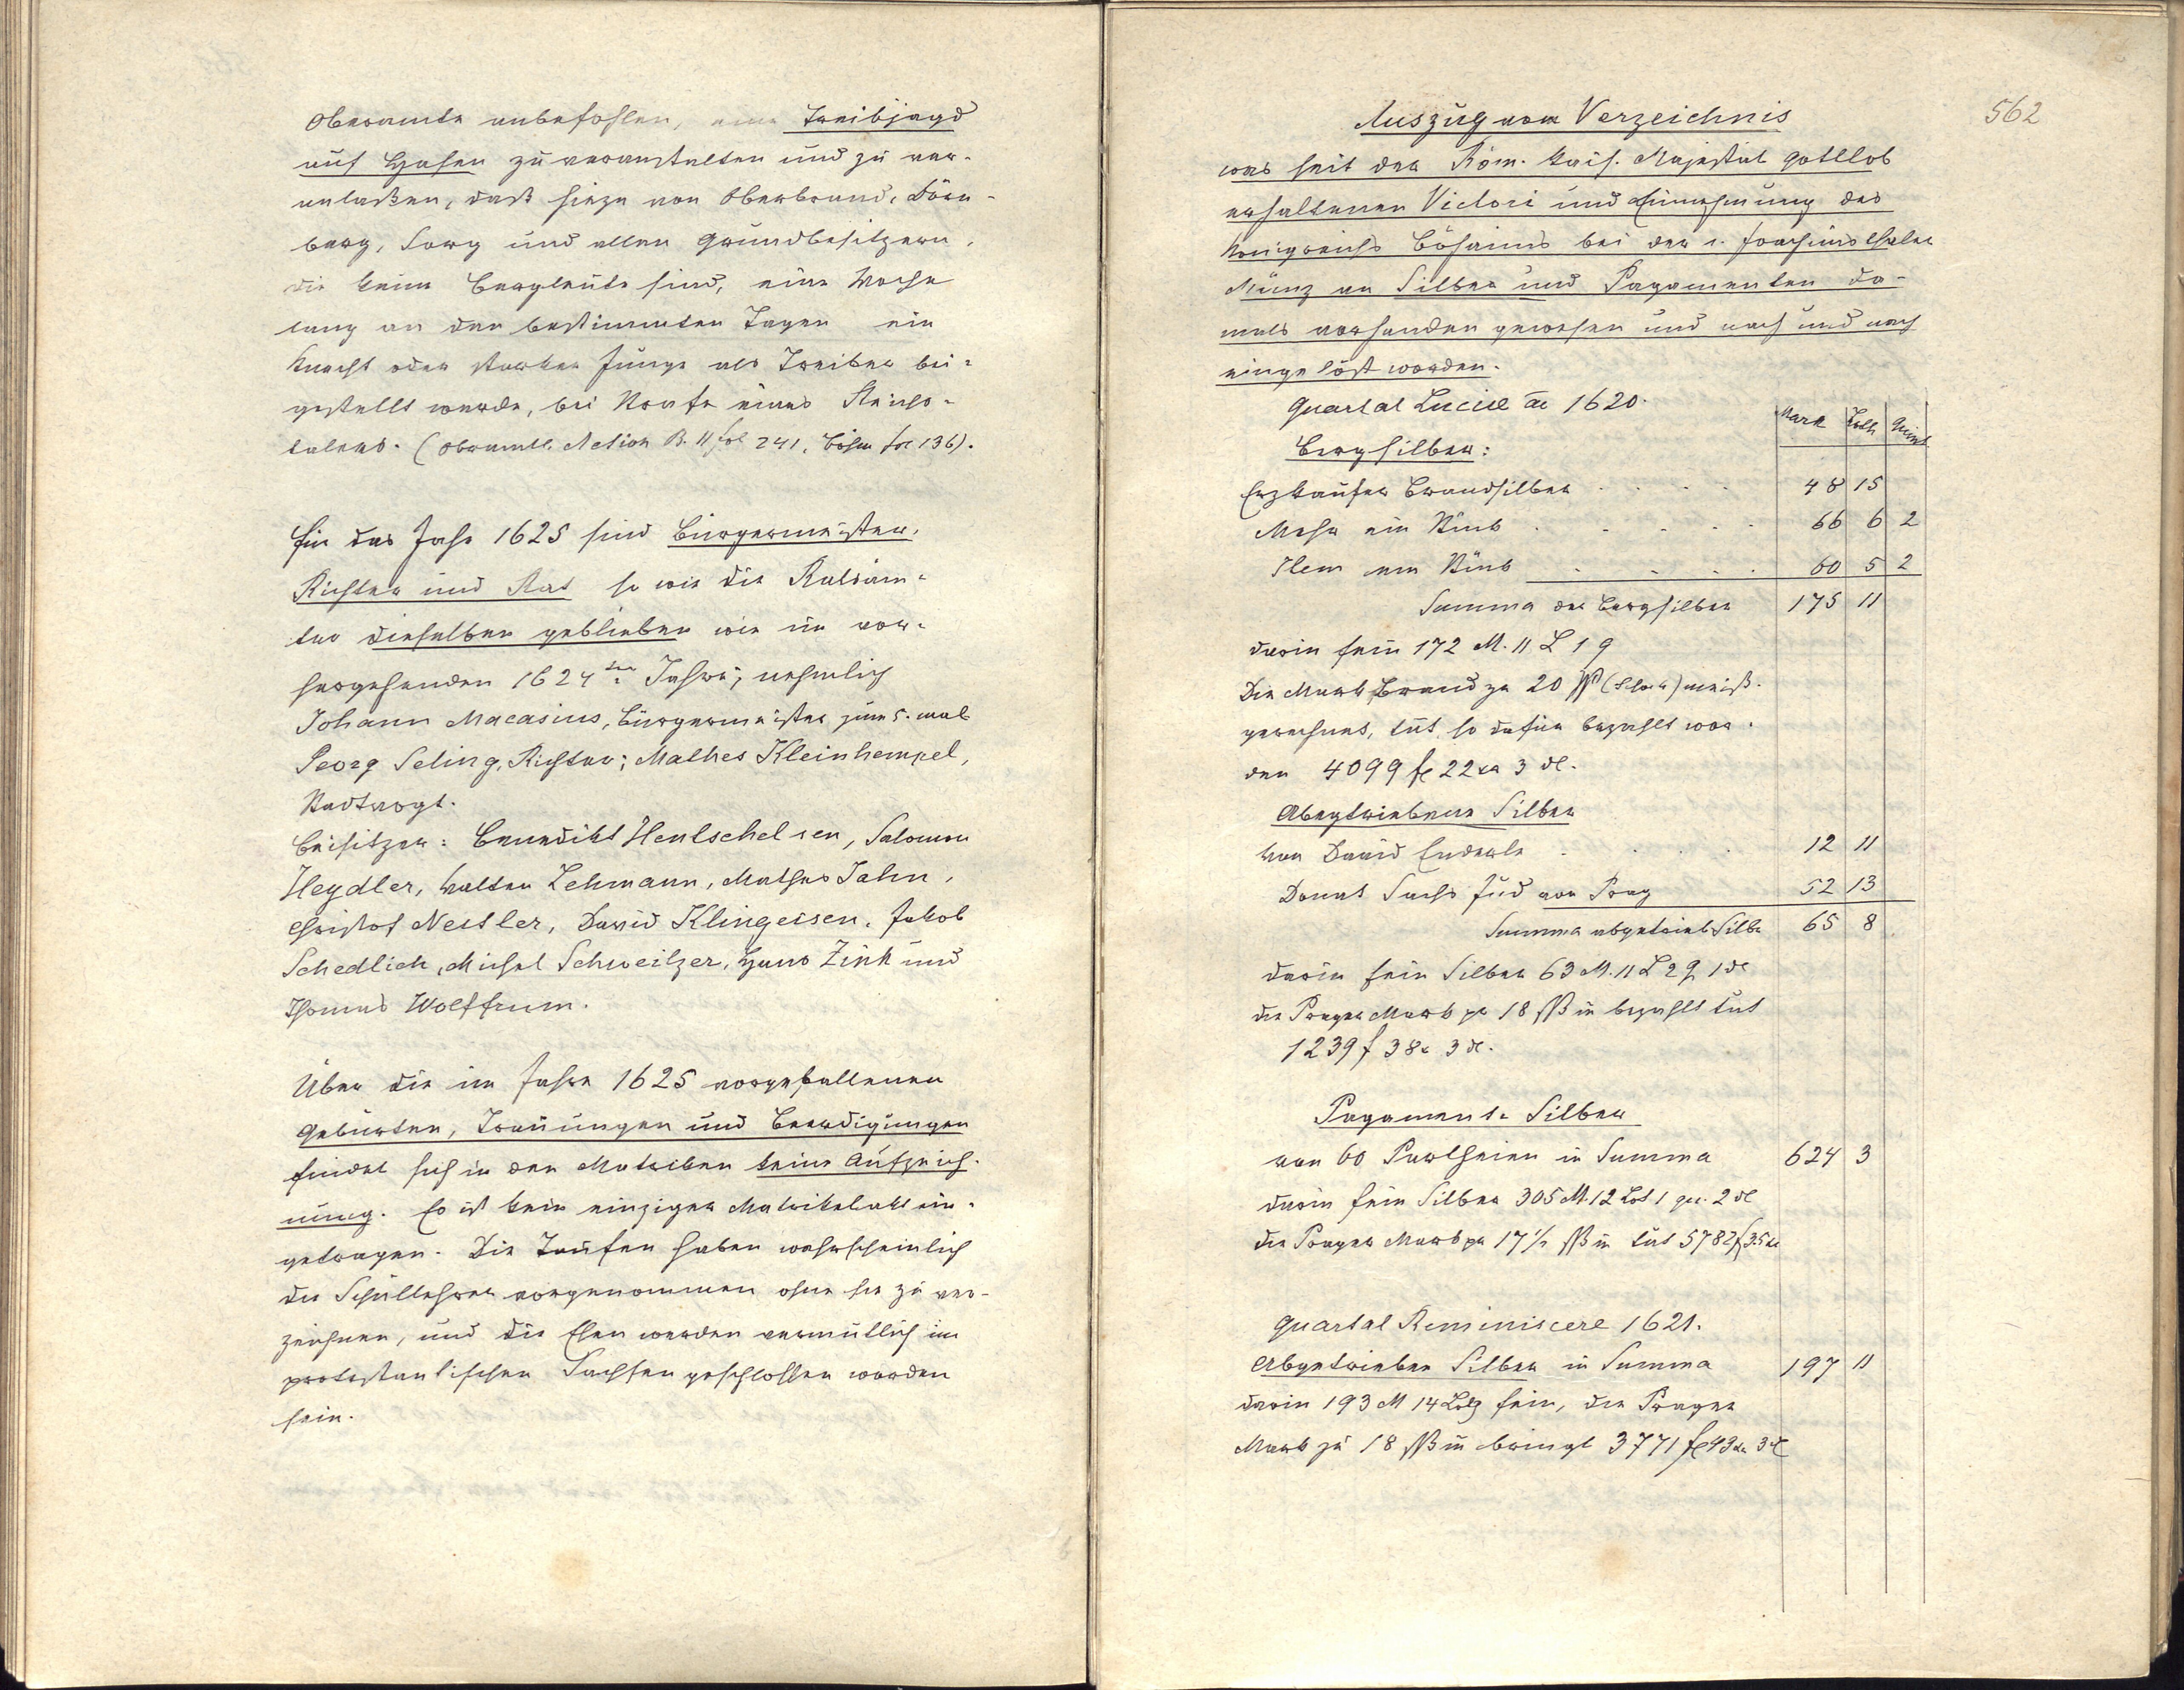 Oberamte anbefohlen, eine Treibjagd
auf Hasen zu veranstalten und zu ver-
anlaßen, daß hiezu von Oberbrand, Dürn-
berg, Sorg und allen Grundbesitzern,
die keine Bergleute sind, eine Woche
lang an den bestimmten Tagen ein
Knecht oder starker Junge als Treiber bei-
gestellt werde, bei Strafe eines Reichs-
talers. (Oberamtl. Action B. 11 fol 241, Böhm fol 136).
Für das Jahr 1625 sind Bürgermeister,
Richter und Rat so wie die Ratsäm-
ter dieselben geblieben wie im vor-
hergehenden 1624ten Jahre, nehmlich
Johann Macasius, Bürgermeister zum 5. mal
Georg Seling, Richter; Mathes Kleinhempel,
Stadtvogt.
Beisitzer: Benedikt Hentschel sen, Salomon
Heydler, Walter Lehmann, Mathes Jahn,
Christof Nestler, David Klingeisen, Jakob
Schedlich, Michel Schweitzer, Hans Zink und
Thomas Wolffrum.
Über die im Jahre 1625 vorgefallenen
Geburten, Trauungen und Beerdigungen
findet sich in den Matriken keine Aufzeich-
nung. Es ist kein einziger Matrikelakt ein-
getragen. Die Taufen haben wahrscheinlich
die Schullehrer vorgenommen ohne sie zu ver-
zeichnen, und die Ehen werden vermutlich im
protestantischen Sachsen geschlossen worden
sein.
562
Auszug vom Verzeichnis
was seit der Röm. Kais. Majestät gottlob
erhaltenen Victori und Einnehmung des
Königreichs Böhaims bei der s. Joachimsthaler
Münz an Silber und Pagamenten da-
mals vorhanden gewesen und nach und nach
eingelöst worden.
Quartal Luciæ ao 1620.
Mark Loth Quint
Bergsilber:
Erzkaufer Brandsilber . . . . 48 15
Mehr ein Stück . . . . . 66 6 2
Item ein Stück . . . . 60 5 2
Summa der Bergsilber 175 11
darin fein 172 M. 11 L 1 q
Die Mark Brand zu 20 ß (Schock) meiß.
gerechnet, tut, so dafür bezahlt wor-
den 4099 fl 22 kr 3 dl.
Abgetriebene Silber
Von David Enderle . . . . 12 11
Donat Sachs Jud von Prag 52 13
Summa abgetrieb Silber 65 8
darin fein Silber 63 M. 11 L 2 q 1 dl
die Prager Mark pr 18 ßß m bezahlt tut
1239 f 38 x 3 dl.
Pagament-Silber
von 60 Partheien in Summa 624 3
darin fein Silber 305 M. 12 Lot 1 qu. 2 dl
die Prager Mark pr 17 1/2 ßß m tut 5782 f 35 kr
Quartal Reminiscere 1621.
Abgetrieben Silber in Summa 197 11
darin 193 M 14 Lotg fein, die Prager
Mark zu 18 ßß m bringt 3771 fl 43 kr 3 dl